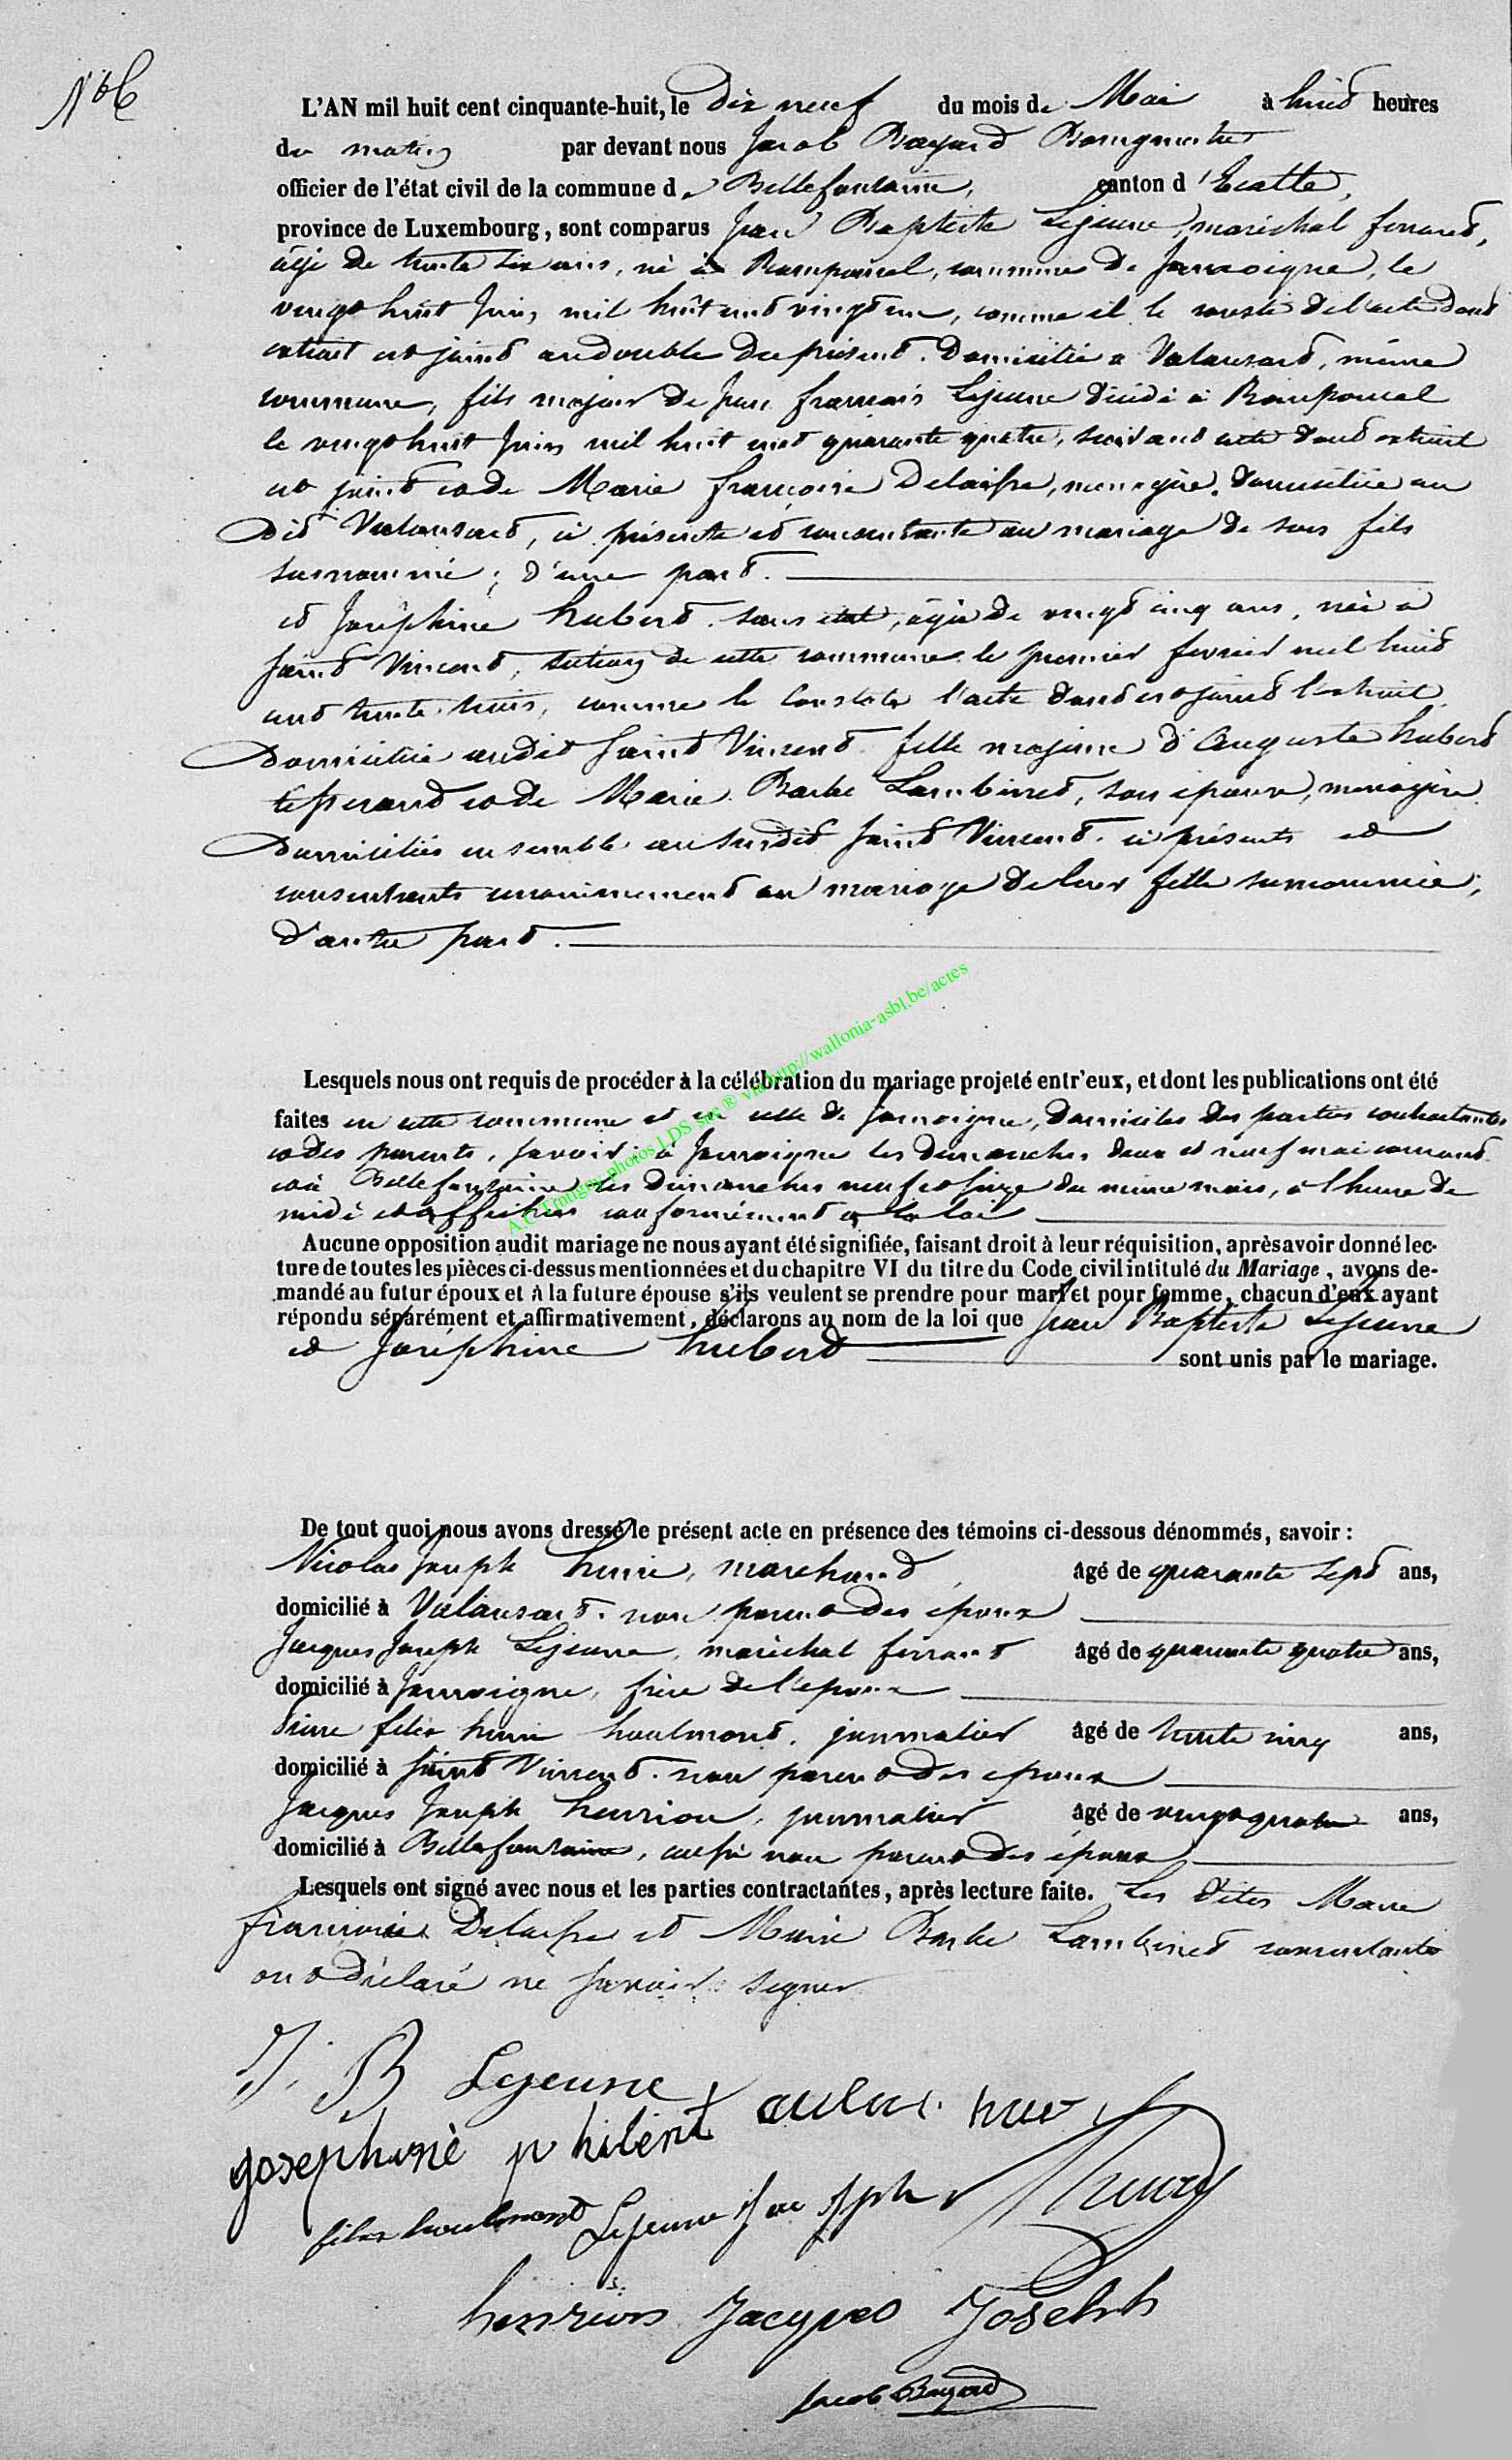 N° 6
L'AN mil huit cent cinquante-huit, le dix neuf du mois de Mai à huit heures
du matin par devant nous Jacob Bayard Bourgmestre
officier de l'état civil de la commune de Bellefontaine, canton d'Etalle,
province de Luxembourg, sont comparus Jean Baptiste Lejeune, maréchal ferrand,
âgé de trente six ans, né à Romponcel, commune de Jamoigne, le
vingt huit Juin mil huit cent vingt un, comme il le conste de l'acte dont
extrait est joint au double du présent. Domicilié à Valansart, même
commune, fils majeur de Jean françois Lejeune décédé à Romponcel
le vingt huit Juin mil huit cent quarante quatre, suivant acte dont extrait
est joint et de Marie françoise Delaisse, ménagère, domiciliée au
dit Valansart, ci présente et consentante au mariage de son fils
surnommé; d'une part.
et Joséphine hubert sans etat, âgée de vingt cinq ans, née à
Saint Vincent, section de cette commune le premier fevrier mil huit
cent trente trois, comme le Constate l'acte dont est joint l'extrait
Domiciliée audit Saint Vincent fille majeure d'Auguste hubert
tisserand et de Marie Barbe Lambinet, son épouse, ménagère
Domiciliés ensemble au susdit Saint Vincent. ci présents et
consentants unanimement au mariage de leur fille surnommée;
d'autre part.
Lesquels nous ont requis de procéder à la célébration du mariage projeté entr'eux, et dont les publications ont été
faites en cette commune et en celle de Jamoigne, domiciles des parties contractantes
et des parents, savoir: à Jamoigne les dimanches deux et neuf mai courant
et à Bellefontaine les Dimanches neuf et seize du même mois, à l'heure de
midi et affichées conformément à la loi
Aucune opposition audit mariage ne nous ayant été signifiée, faisant droit à leur réquisition, après avoir donné lec-
ture de toutes les pièces ci-dessus mentionnées et du chapitre VI du titre du Code civil intitulé du Mariage, avons de-
mandé au futur époux et à la future épouse s'ils veulent se prendre pour mari et pour femme, chacun d'eux ayant
répondu séparément et affirmativement, déclarons au nom de la loi que Jean Baptiste Lejeune
et Joséphine hubert sont unis par le mariage.
De tout quoi nous avons dressé le présent acte en présence des témoins ci-dessous dénommés, savoir:
Nicolas Joseph marchand, âgé de quarante sept ans,
domicilié à Valansart. non parent des époux
Jacques Joseph Lejeune, maréchal ferrant âgé de quarante quatre ans,
domicilié à Jamoigne, frère de l'époux
félix houlmont, journalier âgé de trente cinq ans,
domicilié à Saint Vincent. non parent des époux
Jacques Joseph henrion, journalier âgé de vingt quatre ans,
domicilié à Bellefontaine, aussi non parent des époux
Lesquels ont signé avec nous et les parties contractantes, après lecture faite. Les dites Marie
françoise Delaisse et Marie Barbe Lambinet consentantes
ont déclaré ne savoir signer
J. B Lejeune
Josephine
houlmont Lejeune
henrion Jacques Joseph
Jacob Bayard
A.C. Tintigny photos LDS site ® via http://wallonia-asbl.be/actes